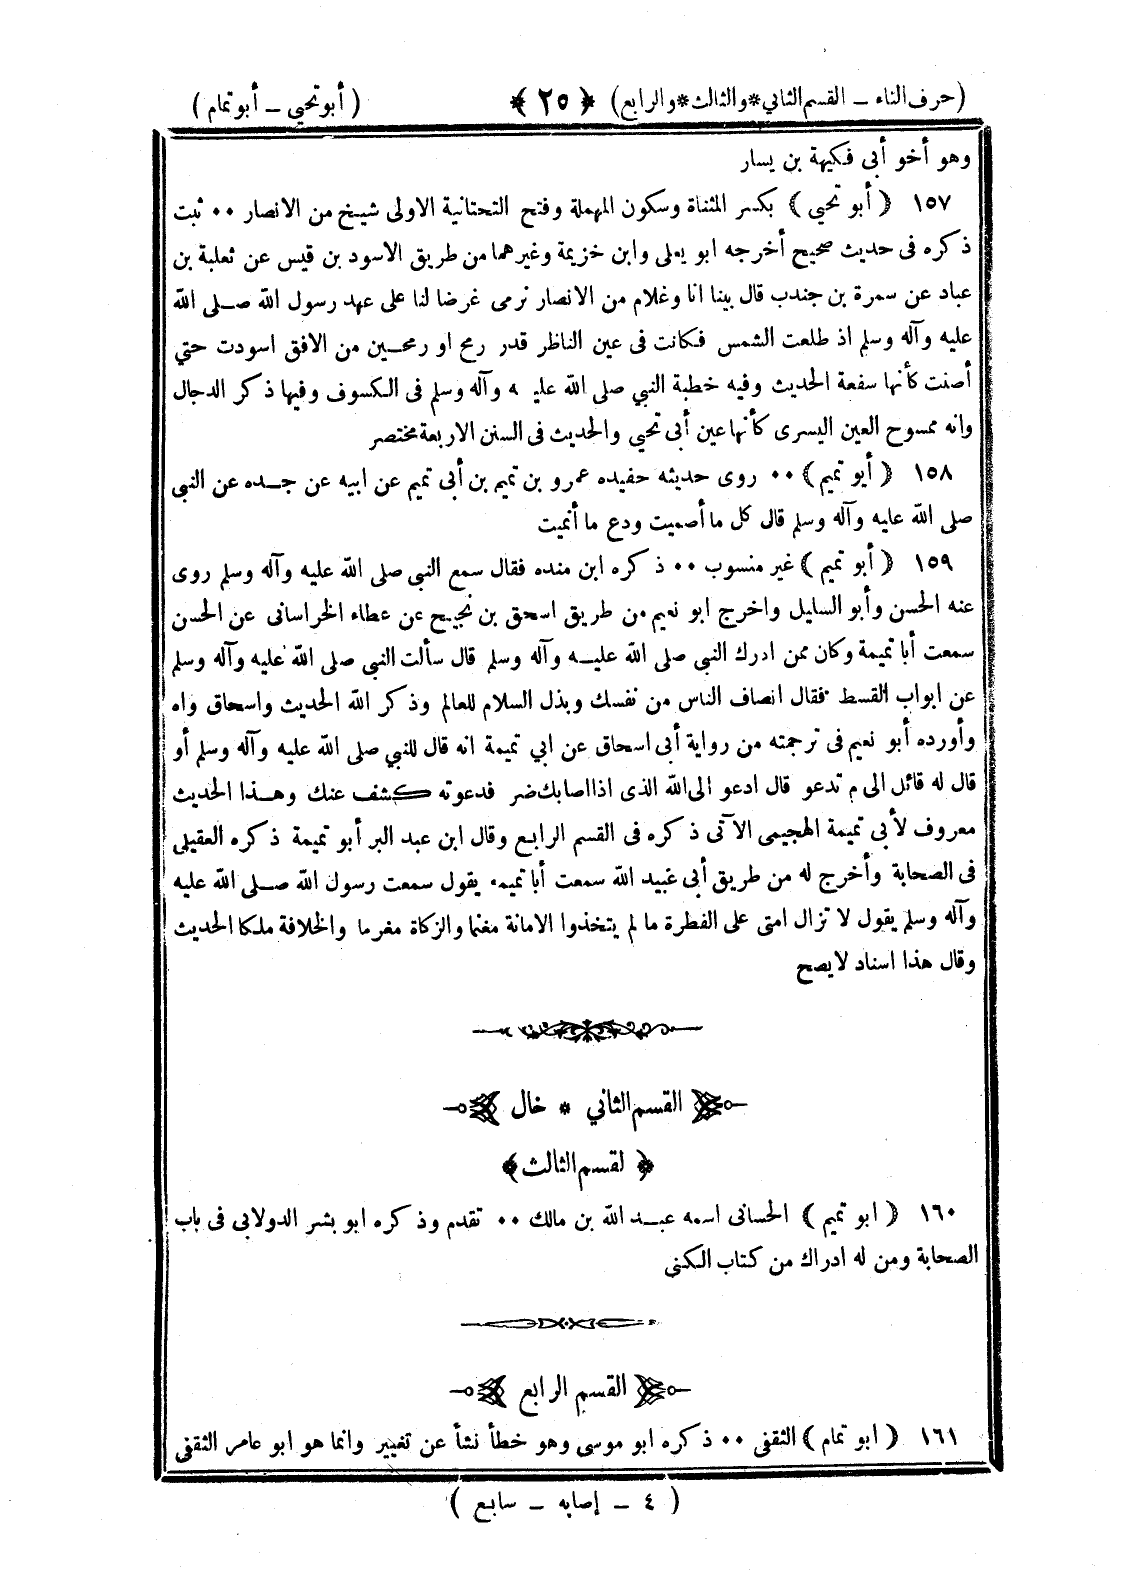 (حرف التاء – القسم الثاني*والثالث*والرابع) ﴿ ٢٥ ﴾ (أبو تحيي – أبو تمام)
وهو أخو أبى فكيهة بن يسار
١٥٧ ﴿ أبو تحيي ﴾ بكسر المثناة وسكون المهملة وفتح التحتانية الاولى شيخ من الانصار ٠٠ ثبت
ذكره فى حديث صحيح أخرجه ابو يعلى وابن خزيمة وغيرهما من طريق الاسود بن قيس عن ثعلبة بن
عباد عن سمرة بن جندب قال بينا انا وغلام من الانصار نرمى غرضا لنا على عهد رسول الله صلى الله
عليه وآله وسلم اذ طلعت الشمس فكانت فى عين الناظر قدر رمح او رمحين من الافق اسودت حتي
أصنت كأنها سفعة الحديث وفيه خطبة النبي صلى الله عليه وآله وسلم فى الكسوف وفيها ذكر الدجال
وانه ممسوح العين اليسرى كأنها عين أبى تحيي والحديث فى السنن الاربعة مختصر
١٥٨ ﴿ أبو تميم ﴾ ٠٠ روى حديثه حفيده عمرو بن تميم بن أبى تميم عن ابيه عن جده عن النبى
صلى الله عليه وآله وسلم قال كل ما أصميت ودع ما أنميت
١٥٩ ﴿ أبو تميم ﴾ غير منسوب ٠٠ ذكره ابن منده فقال سمع النبى صلى الله عليه وآله وسلم روى
عنه الحسن وأبو السليل واخرج ابو نعيم من طريق اسحق بن نجيح عن عطاء الخراسانى عن الحسن
سمعت أبا تميمة وكان ممن ادرك النبى صلى الله عليه وآله وسلم قال سألت النبى صلى الله عليه وآله وسلم
عن ابواب القسط فقال انصاف الناس من نفسك وبذل السلام للعالم وذكر الله الحديث واسحاق واه
وأورده أبو نعيم فى ترجمته من رواية أبى اسحاق عن ابي تميمة انه قال للنبي صلى الله عليه وآله وسلم أو
قال له قائل الى م تدعو قال ادعو الى الله الذى اذا اصابك ضر فدعوته كشف عنك وهذا الحديث
معروف لأبي تميمة الهجيمى الآتى ذكره فى القسم الرابع وقال ابن عبد البر أبو تميمة ذكره العقيلى
فى الصحابة وأخرج له من طريق أبى عبيد الله سمعت أبا تميمه يقول سمعت رسول الله صلى الله عليه
وآله وسلم يقول لا تزال امتى على الفطرة ما لم يتخذوا الامانة مغنما والزكاة مغرما والخلافة ملكا الحديث
وقال هذا اسناد لايصح
القسم الثاني * خال
﴿ لقسم الثالث ﴾
١٦٠ ﴿ ابو تميم ﴾ الحسانى اسمه عبد الله بن مالك ٠٠ تقدم وذكره ابو بشر الدولابى فى باب
الصحابة ومن له ادراك من كتاب الكنى
القسم الرابع
١٦١ ﴿ ابو تمام ﴾ الثقفى ٠٠ ذكره ابو موسى وهو خطأ نشأ عن تغيير وانما هو ابو عامر الثقفى
( ٤ – إصابه – سابع )